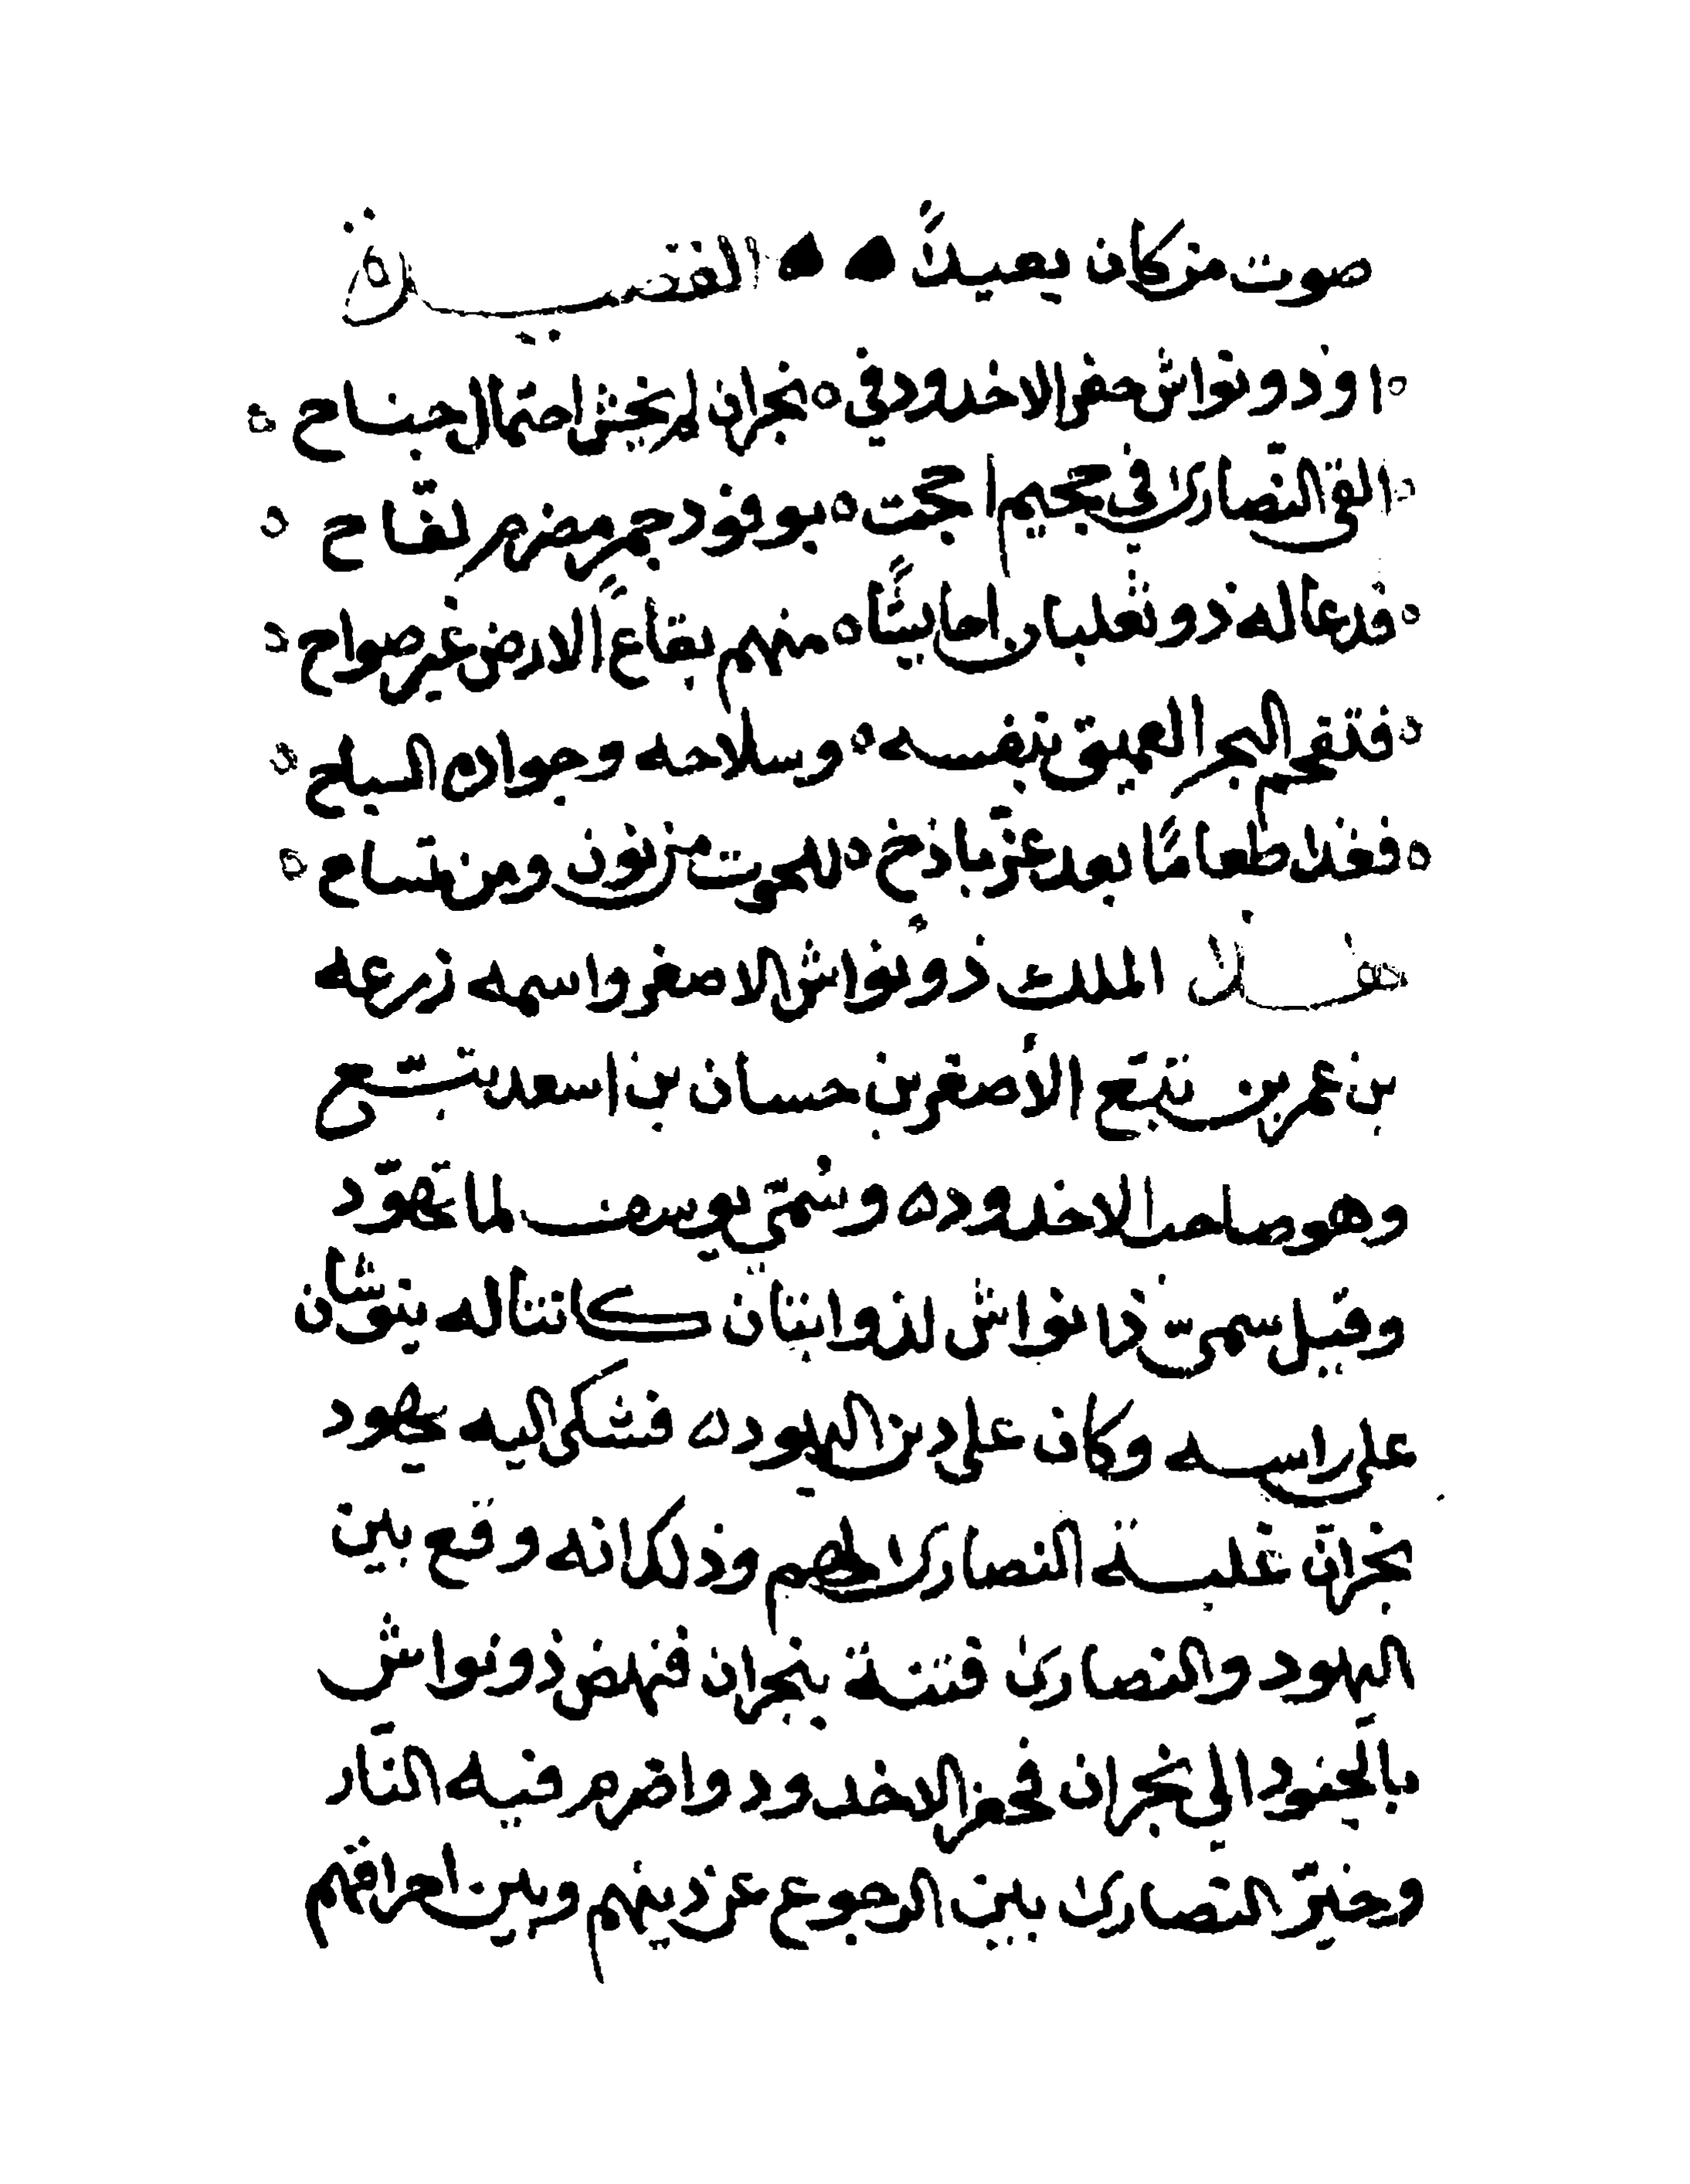 صوت من كان بعيداً القصيدة
او ذو نواش حفر الاخدود في نجران لم يخش احتمال جناح
القى النصارى في جحيم اججت بوقود جمر مضرم لفّاح
فدعا له ذو ثعلبان احابيشًا منهم بقاع الارض غير صواح
فتقحم البحر العميق بنفسه وسلاحه وجواده السباح
فغذا طعامًا بعد عزّ باذخ للحوت من نون ومن تمساح
هذا الملك ذو نواش الاصغر واسمه زرعه
بن عمر بن تبّع الأصغر بن حسان بن اسعد تبتع
وهو صاحب الاخدود وسُمّي يوسف لما تهوّد
وقيل سمي ذا نواش لذوابتان كانتا له ينوشان
على راسه وكان على دين اليهود فشكى اليه يهود
نجران غلبة النصارى لهم وذلك انه وقع بين
اليهود والنصارى فتنة بنجران فنهض ذو نواش
بالجنود الى نجران فحفر الاخدود واضرم فيه النّار
وخيّر النصارى بين الرجوع عن دينهم وبين احراقهم